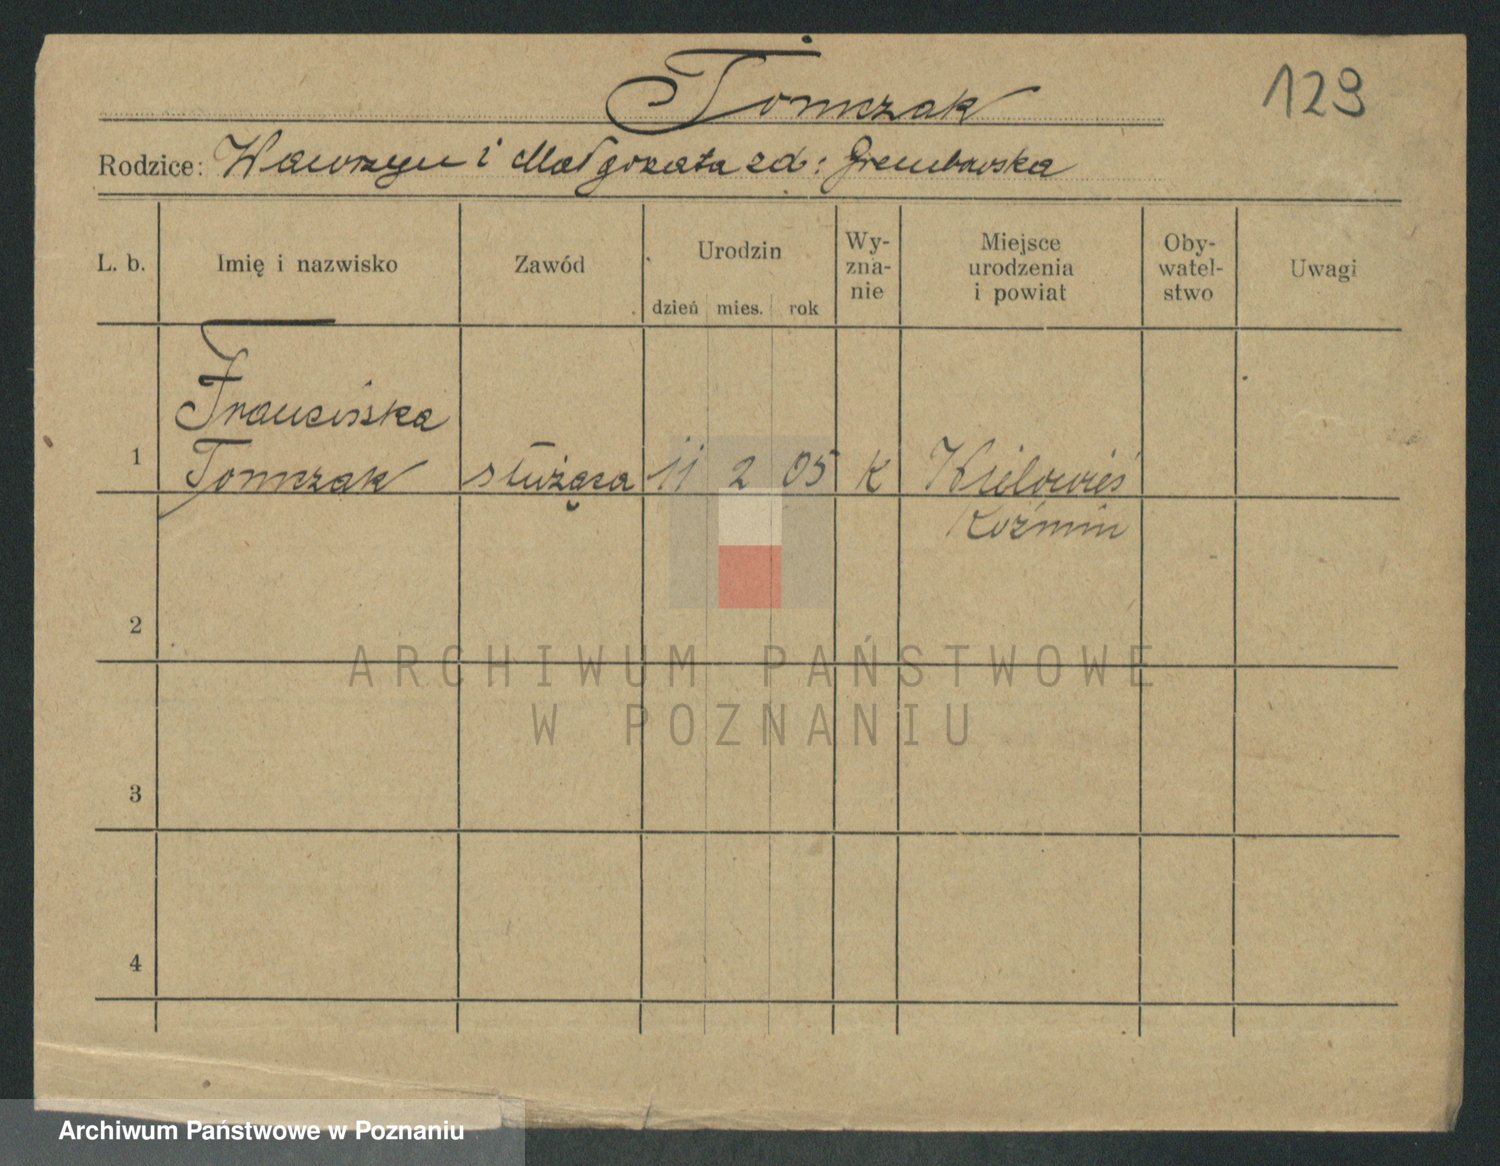 Tomczak
129
Rodzice: Wawrzyn i Małgorzata zd: Grembowska
L. b.
Imię i nazwisko
Zawód
Urodzin
dzień mies. rok
Wy-
zna-
nie
Miejsce
urodzenia
i powiat
Oby-
watel-
stwo
Uwagi
Franciszka
1 Tomczak służąca 11 2 05 K Kielowieś
Koźmin
2
3
4
ARCHIWUM PAŃSTWOWE
W POZNANIU
Archiwum Państwowe w Poznaniu